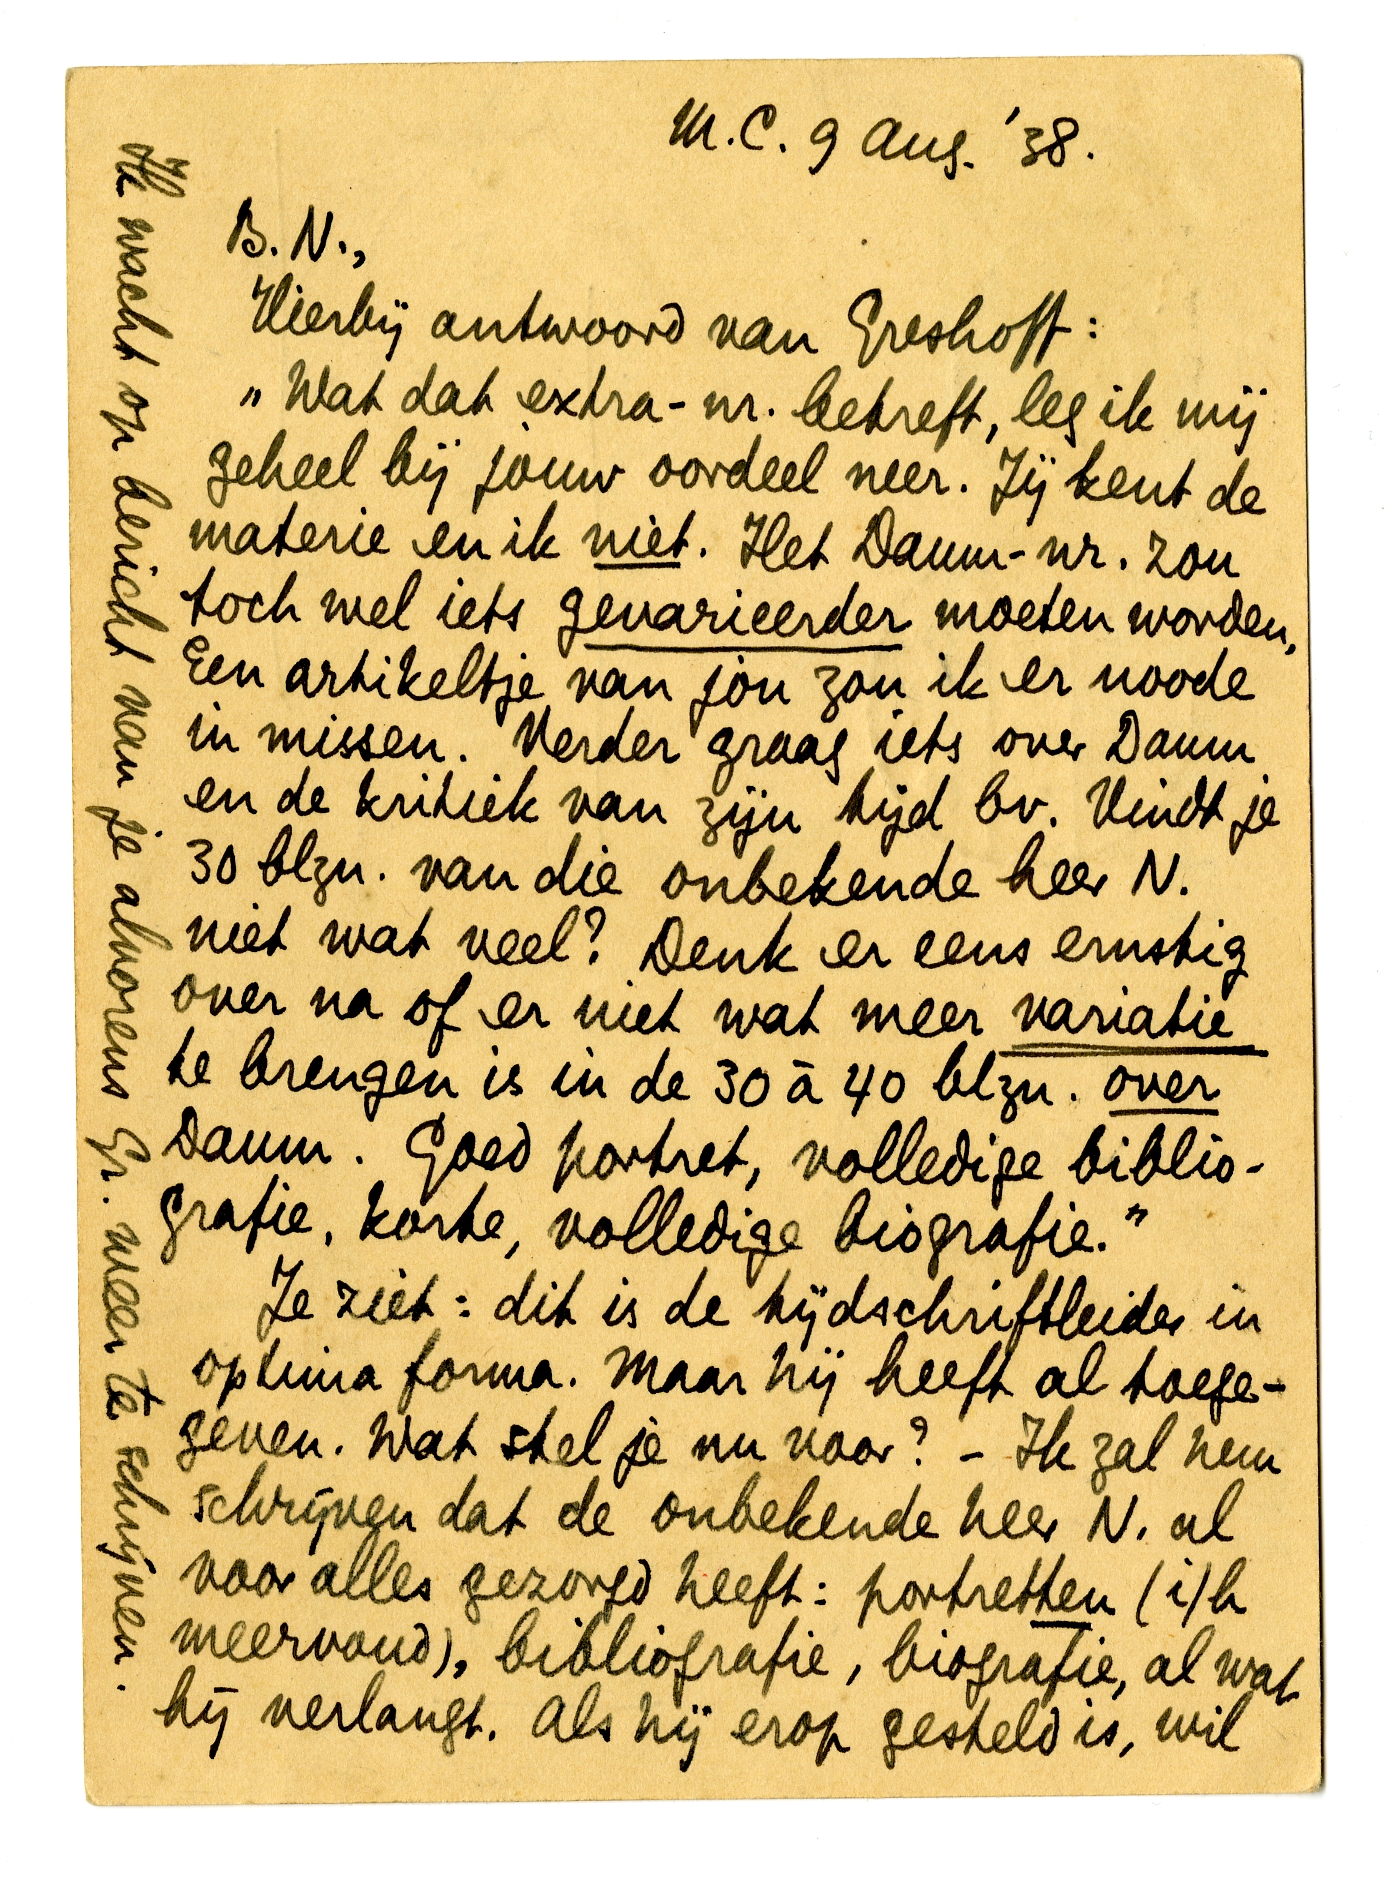 M.C. 9 Aug. '38.
B.N.,
Hierbij antwoord van Greshoff:
„Wat dat extra-nr. betreft, leg ik mij
geheel bij jouw oordeel neer. Jij kent de
materie en ik niet. Het Daum-nr. zou
toch wel iets gevarieerder moeten worden,
Een artikeltje van jou zou ik er noode
in missen. Verder graag iets over Daum
en de kritiek van zijn tijd bv. Vindt je
30 blzn. van die onbekende heer N.
niet wat veel? Denk er eens ernstig
over na of er niet wat meer variatie
te brengen is in de 30 à 40 blzn. over
Daum. Goed portret, volledige biblio-
grafie, korte, volledige biografie.”
Je ziet: dit is de tijdschriftleider in
optima forma. Maar hij heeft al toege-
geven. Wat stel je nu voor? – Ik zal hem
schrijven dat de onbekende heer N. al
voor alles gezorgd heeft: portretten (i/h
meervoud), bibliografie, biografie, al wat
hij verlangt. Als hij erop gesteld is, wil
Ik wacht op bericht van je alvorens Gr. weer te schrijven.